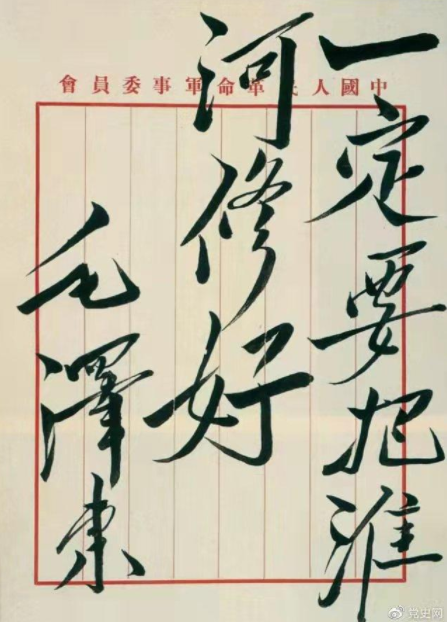 會員委事軍命革民人國中
一定要把淮
河修好
毛澤东
党史网